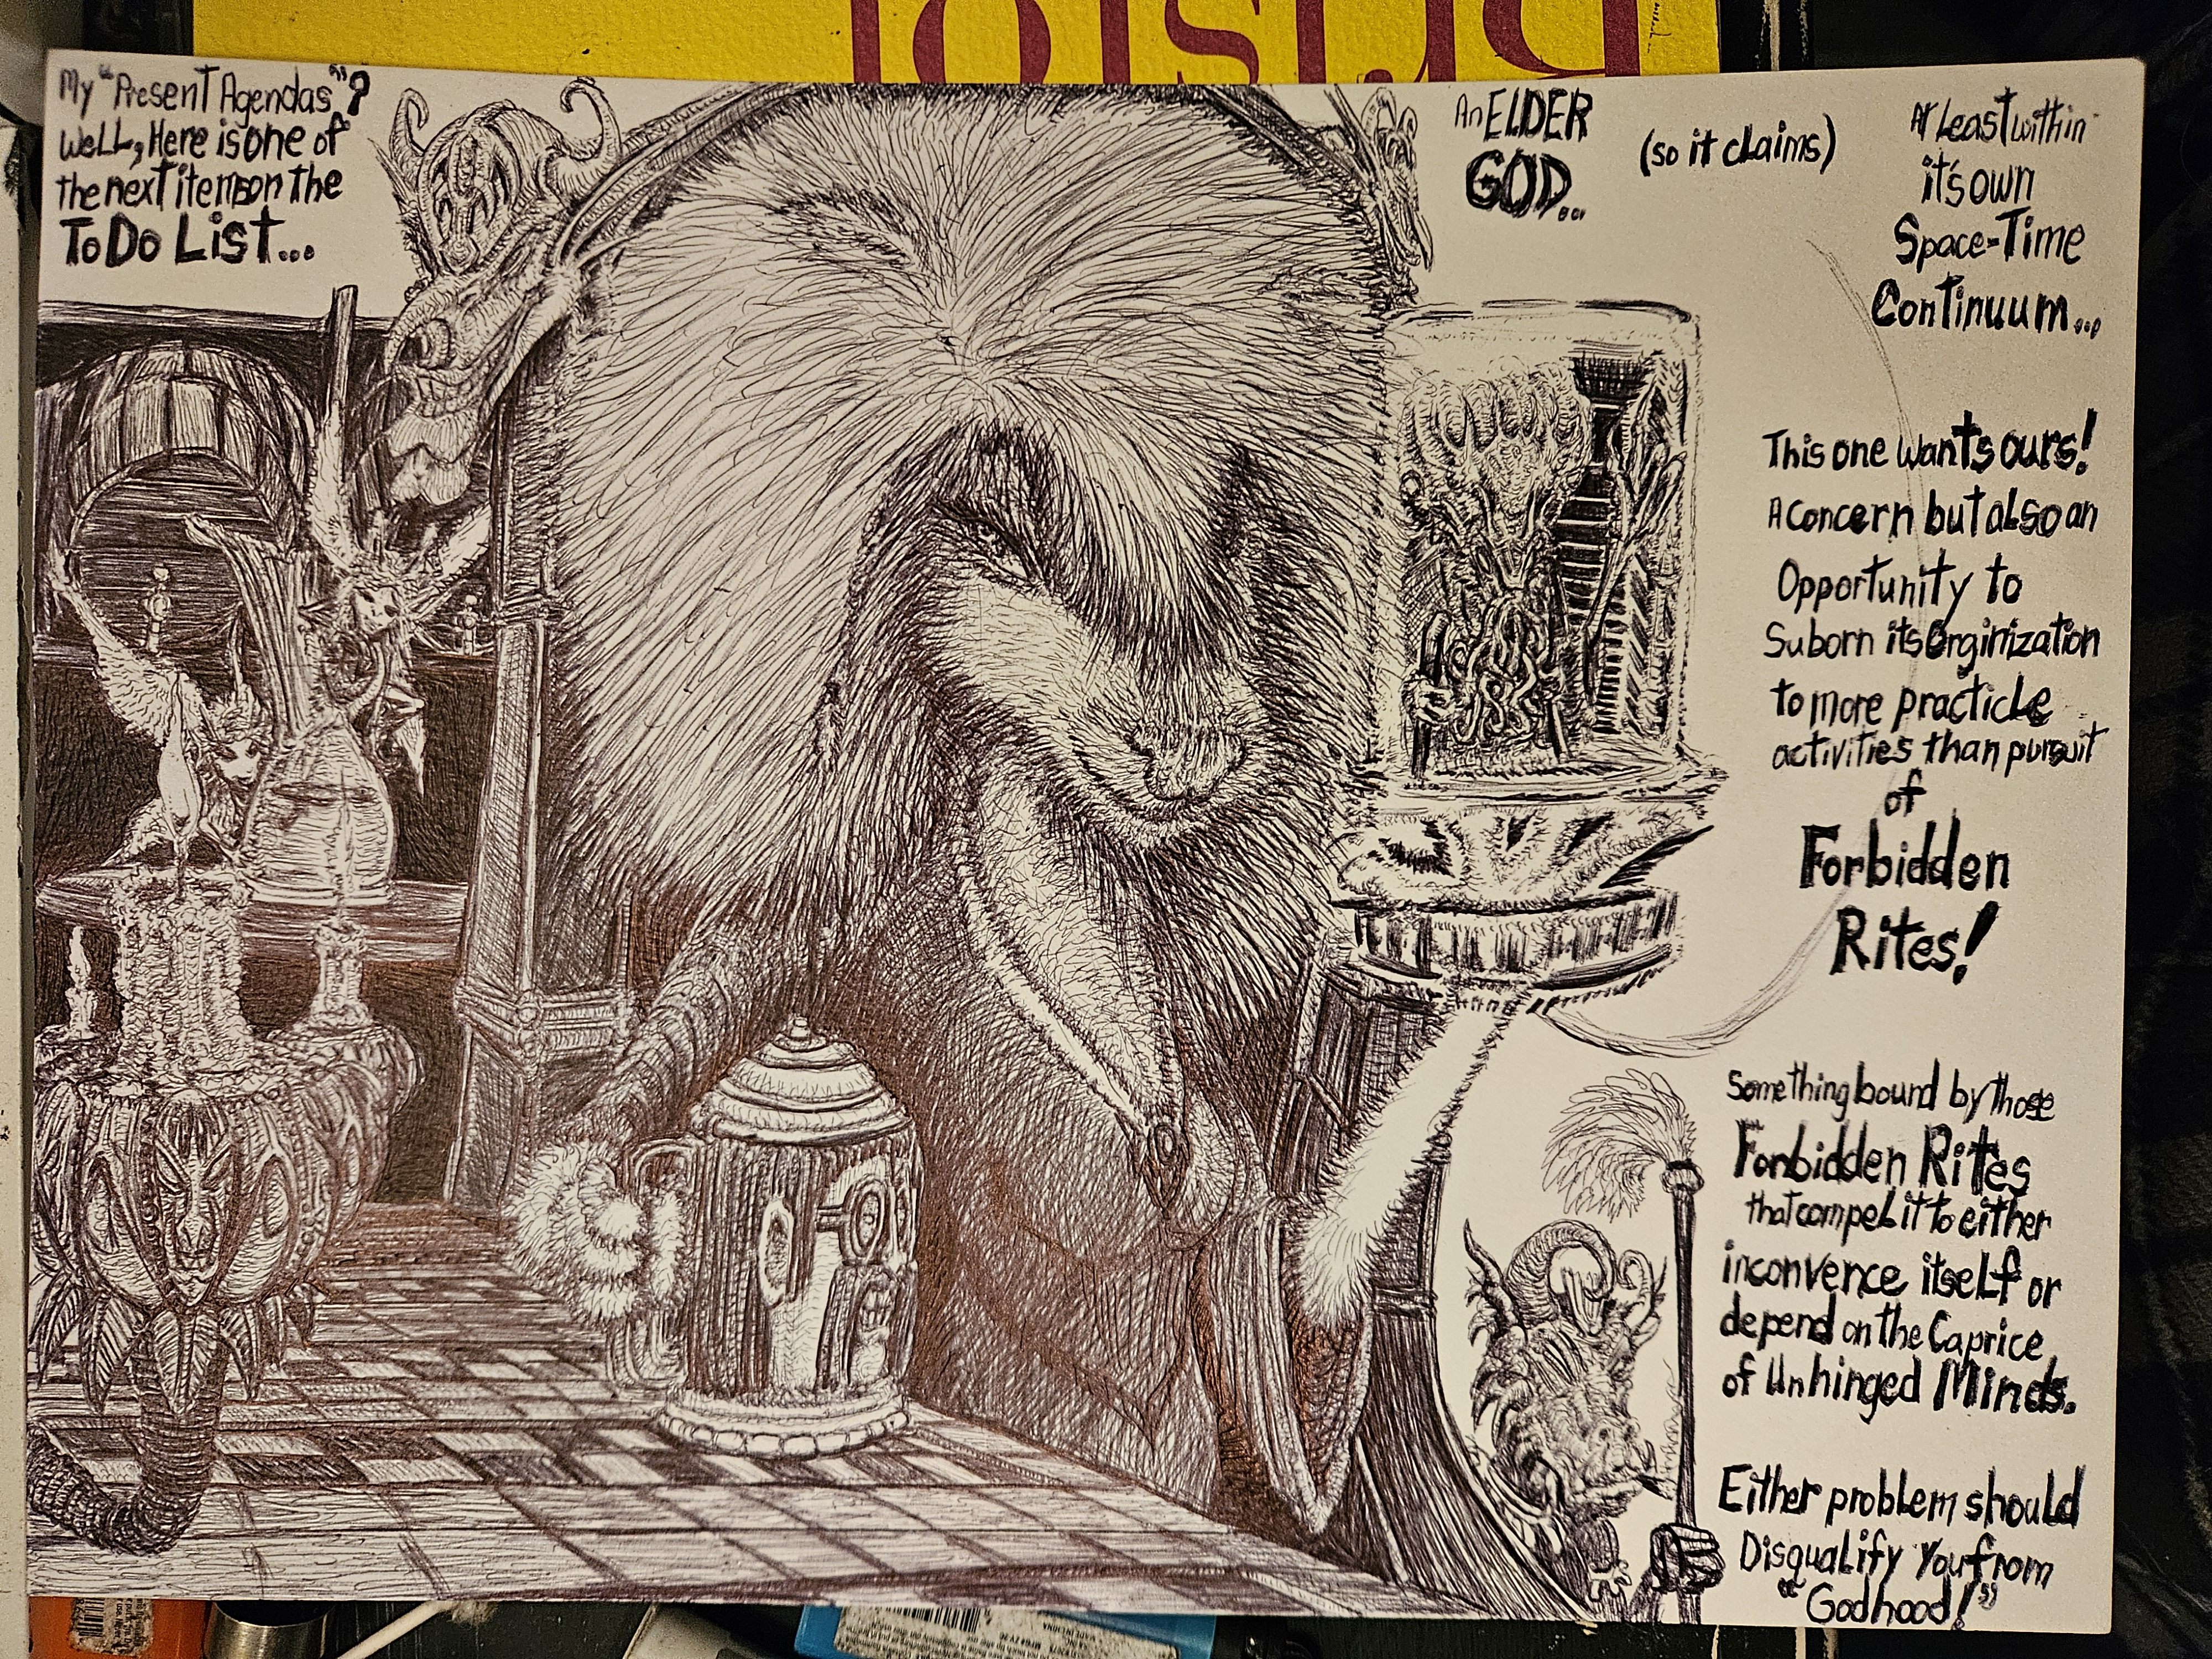 Bristol
My "Present Agendas"?
Well, Here is one of
the next items on the
To Do List...
An ELDER
GOD...
(so it claims)
At Least within
it's own
Space-Time
Continuum...
This one wants ours!
A concern but also an
Opportunity to
Suborn its Orginization
to more practicle
activities than pursuit
of
Forbidden
Rites!
Something bound by those
Forbidden Rites
that compel it to either
inconvence itself or
depend on the Caprice
of Unhinged Minds.
Either problem should
Disqualify You from
"Godhood!"